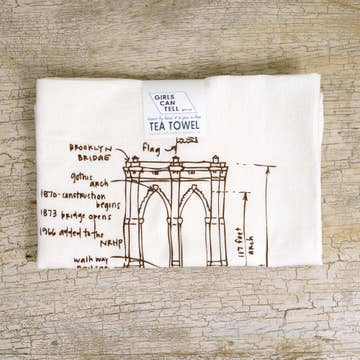 GIRLS
CAN
TELL
TEA TOWEL
BROOKLYN
BRIDGE
flag
gothic
arch
1870-construction
begins
1873 bridge opens
1966 added to the
NRHP
walkway
117 feet
arch